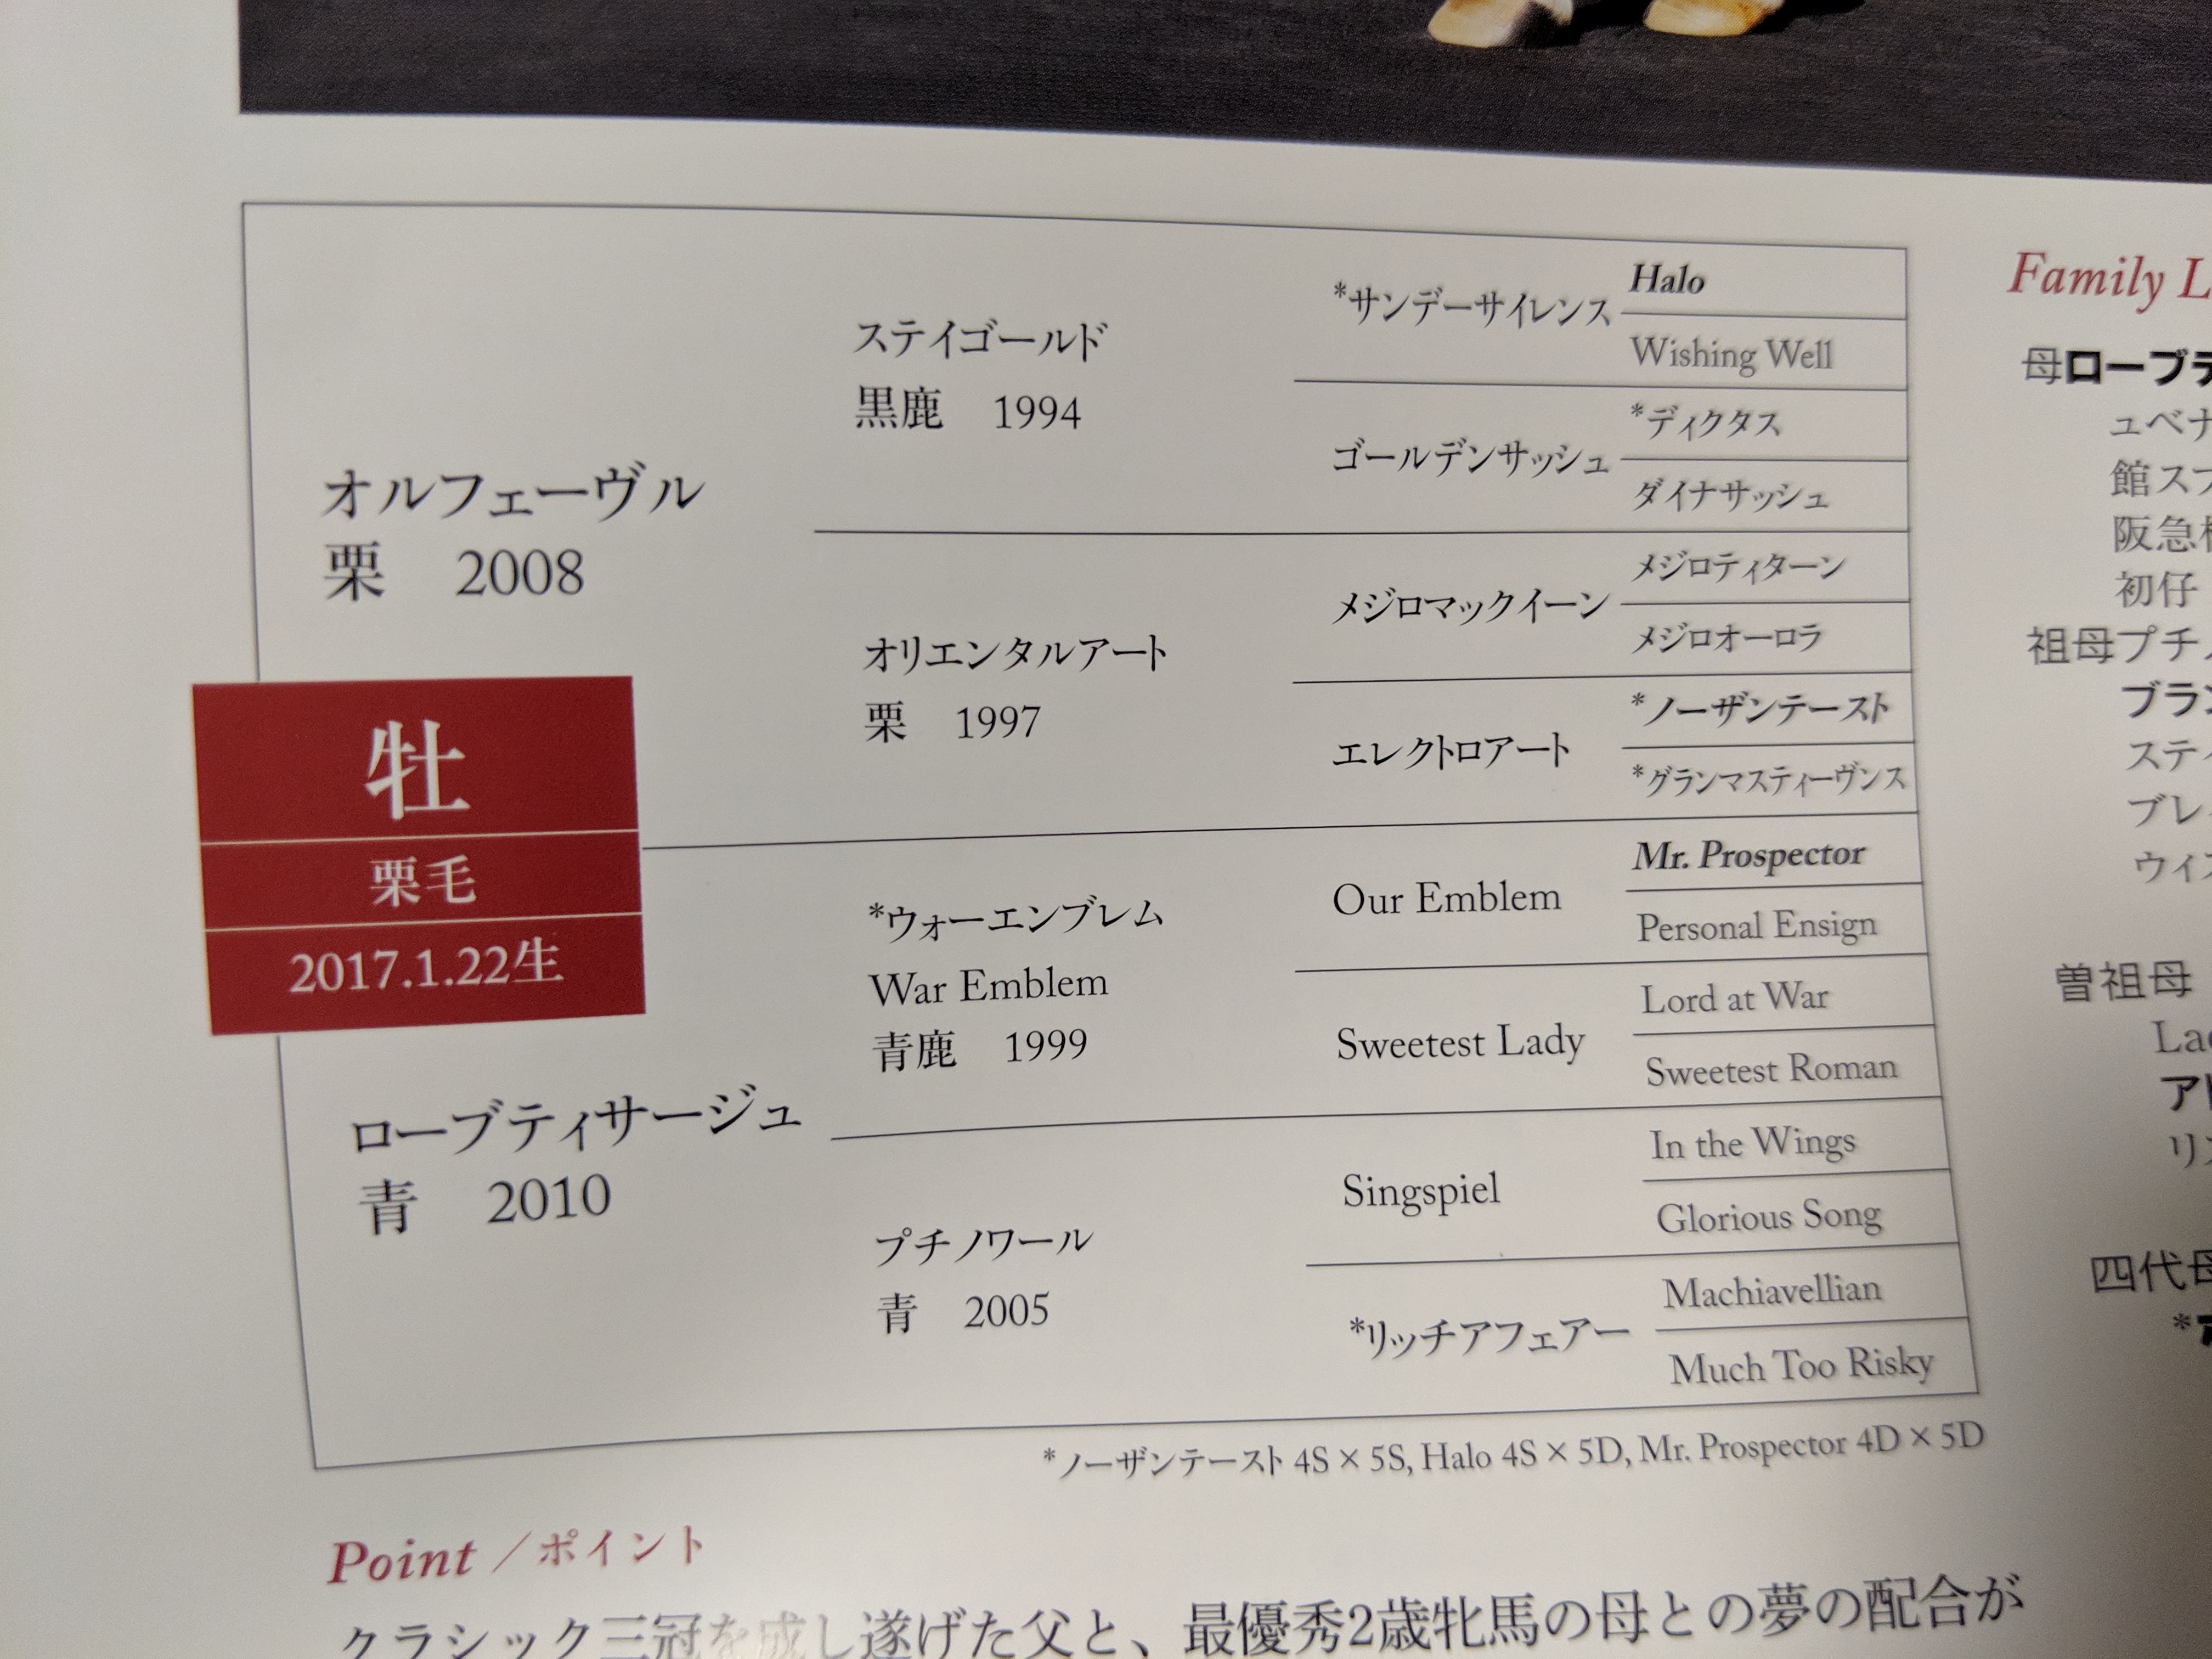 オルフェーヴル
栗 2008
ステイゴールド
黒鹿 1994
*サンデーサイレンス
Halo
Wishing Well
ゴールデンサッシュ
*ディクタス
ダイナサッシュ
オリエンタルアート
栗 1997
メジロマックイーン
メジロティターン
メジロオーロラ
エレクトロアート
*ノーザンテースト
*グランマスティーヴンス
牡
栗毛
2017.1.22生
ローブティサージュ
青 2010
*ウォーエンブレム
War Emblem
青鹿 1999
Our Emblem
Mr. Prospector
Personal Ensign
Sweetest Lady
Lord at War
Sweetest Roman
プチノワール
青 2005
Singspiel
In the Wings
Glorious Song
*リッチアフェアー
Machiavellian
Much Too Risky
*ノーザンテースト 4S × 5S, Halo 4S × 5D, Mr. Prospector 4D × 5D
Point /ポイント
クラシック三冠を成し遂げた父と、最優秀2歳牝馬の母との夢の配合が
Family L
母ローブテ
ュベナ
館スプ
阪急杯
初仔
祖母プチノ
ブラン
ステイ
ブレ
ウィ
曽祖母
Lad
ア
リ
四代母